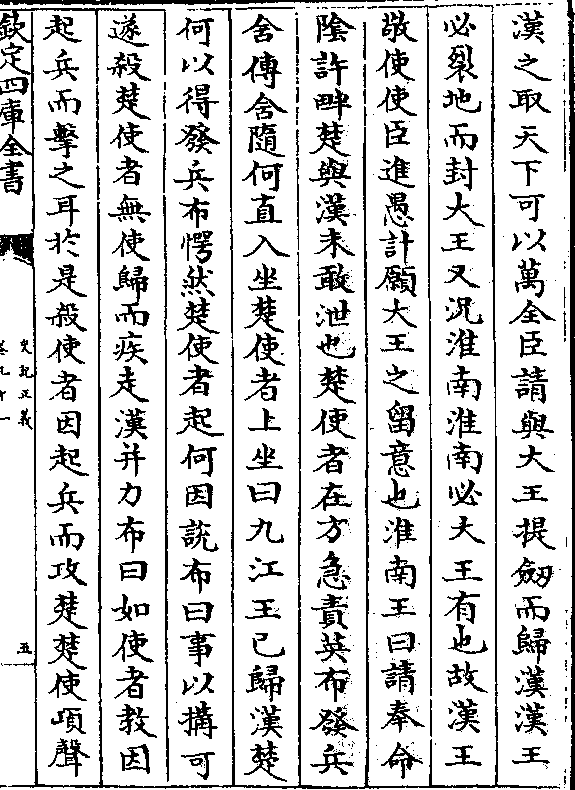 漢之取天下可以萬全臣請與大王提劒而歸漢漢王
必裂地而封大王又況淮南淮南必大王有也故漢王
敬使使臣進愚計願大王之留意也淮南王曰請奉命
陰許畔楚與漢未敢泄也楚使者在方急責英布發兵
舍傳舍隨何直入坐楚使者上坐曰九江王已歸漢楚
何以得發兵布愕然楚使者起何因説布曰事以搆可
遂殺楚使者無使歸而疾走漢并力布曰如使者教因
起兵而擊之耳於是殺使者因起兵而攻楚楚使項聲
欽定四庫全書
史記正義
卷九十一
五